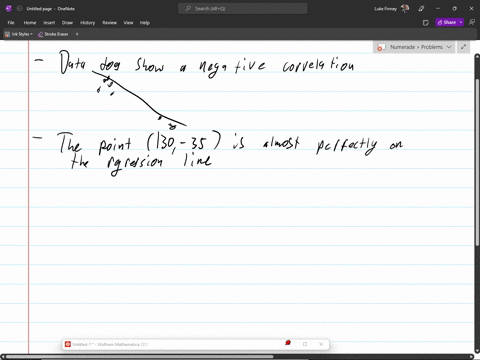 Untitled page - OneNote
Search
Luke Finney
File Home Insert Draw History Review View Help
Share
Ink Styles Stroke Eraser
Numerade > Problems
- Data show a negative correlation
- The point (130, -35) is almost perfectly on
the rgression line
Untitled-1 * - Wolfram Mathematica